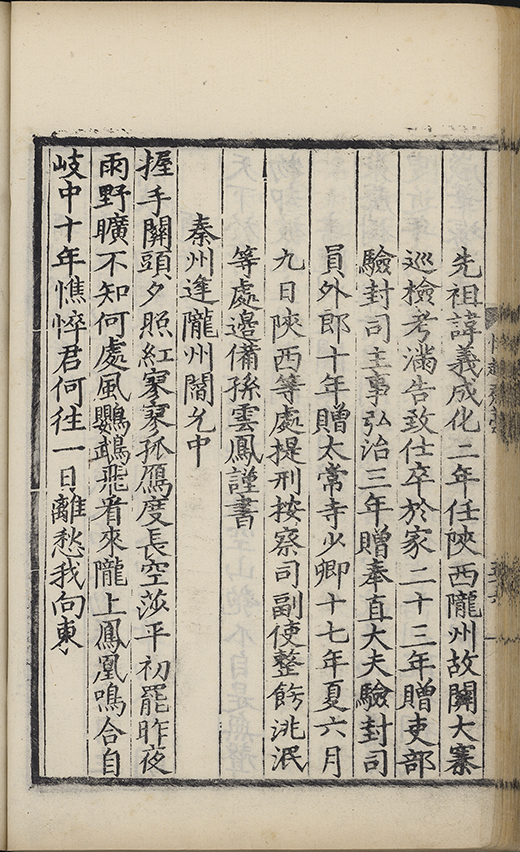 先祖諱義成化二年任陝西隴州故關大寨
巡檢考滿告致仕卒於家二十三年贈吏部
驗封司主事弘治三年贈奉直大夫驗封司
員外郎十年贈太常寺少卿十七年夏六月
九日陝西等處提刑按察司副使整飭洮泯
等處邊備孫雲鳳謹書
秦州逢隴州閻允中
握手關頭夕照紅寥寥孤鴈度長空莎平初罷昨夜
雨野曠不知何處風鸚鵡飛看來隴上鳳凰鳴合自
岐中十年憔悴君何往一日離愁我向東